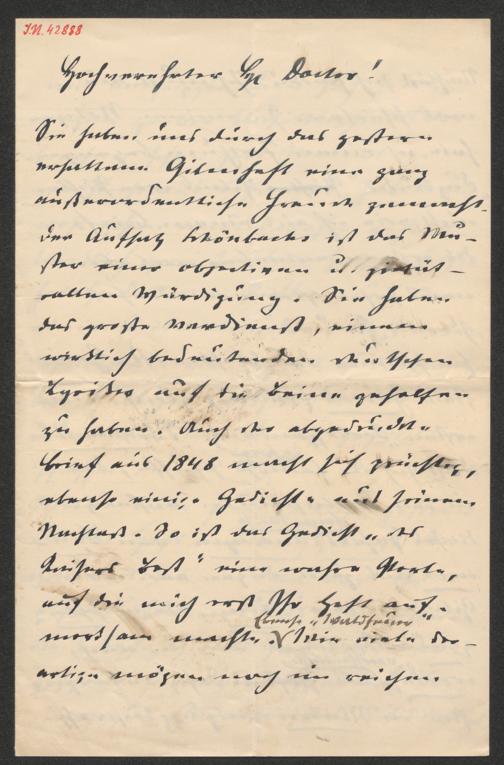 J.N. 42888
Hochverehrter H. Doctor!
Sie haben uns durch das gestern
erhaltene Gilmheft eine ganz
außerordentliche Freude gemacht.
Der Aufsatz Schönbachs ist das Mu-
ster einer objectiven u. gemüt-
vollen Würdigung. Sie haben
das große Verdienst, einem
wirklich bedeutenden deutschen
Lyriker auf die Beine geholfen
zu haben. Auch der abgedruckte
Brief aus 1848 macht sich prächtig,
ebenso einige Gedichte aus seinem
Nachlaß. So ist das Gedicht „des
Kaisers Bast“ eine wahre Perle,
auf die mich erst Ihr Heft auf-
merksam machte. Ebenso „Waldfeuer“
Wie viele der-
artige mögen noch im reichen